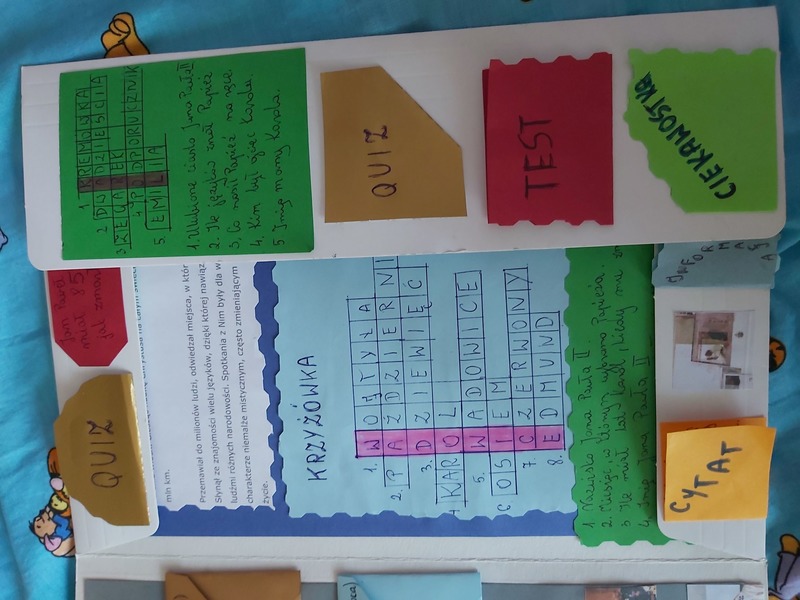 1. KREMOWKA
2. DWADZIESCIA
3 ZEGAREK
4. PODPORUKZNIK
5. EMILIA
1. Ulubione ciasto Jana Pawła II
2. Ile języków znał Papież
3. Co nosił Papież na ręce.
4. Kim był ojciec Karola
5. Imię mamy Karola.
QUIZ
TEST
CIEKAWOSTKA
Jan Paweł
miał 85
jak zmarł
QUIZ
mln km.
Przemawiał do milionów ludzi, odwiedzał miejsca, w któr
Słynął ze znajomości wielu języków, dzięki której nawiąz
ludźmi różnych narodowości. Spotkania z Nim były dla w
charakterze niemalże mistycznym, często zmieniającym
życie.
KRZYŻÓWKA
1. WOJTYŁA
2. PAŹDZIERNI
3. DZIEWIĘĆ
4 KAROL
5. WADOWICE
6 OSIEM
7. CZERWONY
8. EDMUND
1. Nazwisko Jana Pawła II
2. Miesiąc, w którym wybrano Papieża.
3 Ile miał lat Karol, kiedy mu zm
4 Imię Jana Pawła II
INFORMACJA
CYTAT